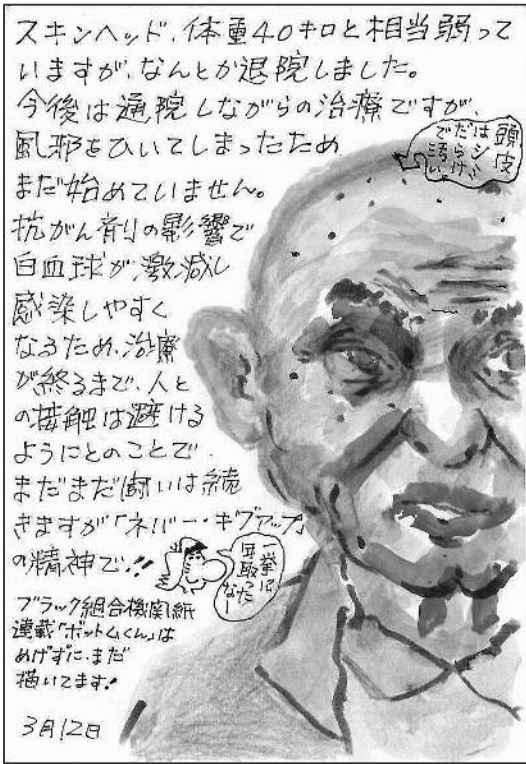 スキンヘッド、体重40キロと相当弱って
いますが、なんとか退院しました。
今後は通院しながらの治療ですが、
風邪をひいてしまったため
まだ始めていません。
抗がん剤の影響で
白血球が激減し
感染しやすく
なるため、治療
が終るまで、人と
の接触は避ける
ようにとのことで
まだまだ闘いは続
きますが「ネバー・ギブアップ」
の精神で!!
頭皮
はシミ
だらけ
で汚い
一挙に
年取った
なー
ブラック組合機関紙
連載「ボットムくん」は
めげずに、まだ
描いてます!
3月12日